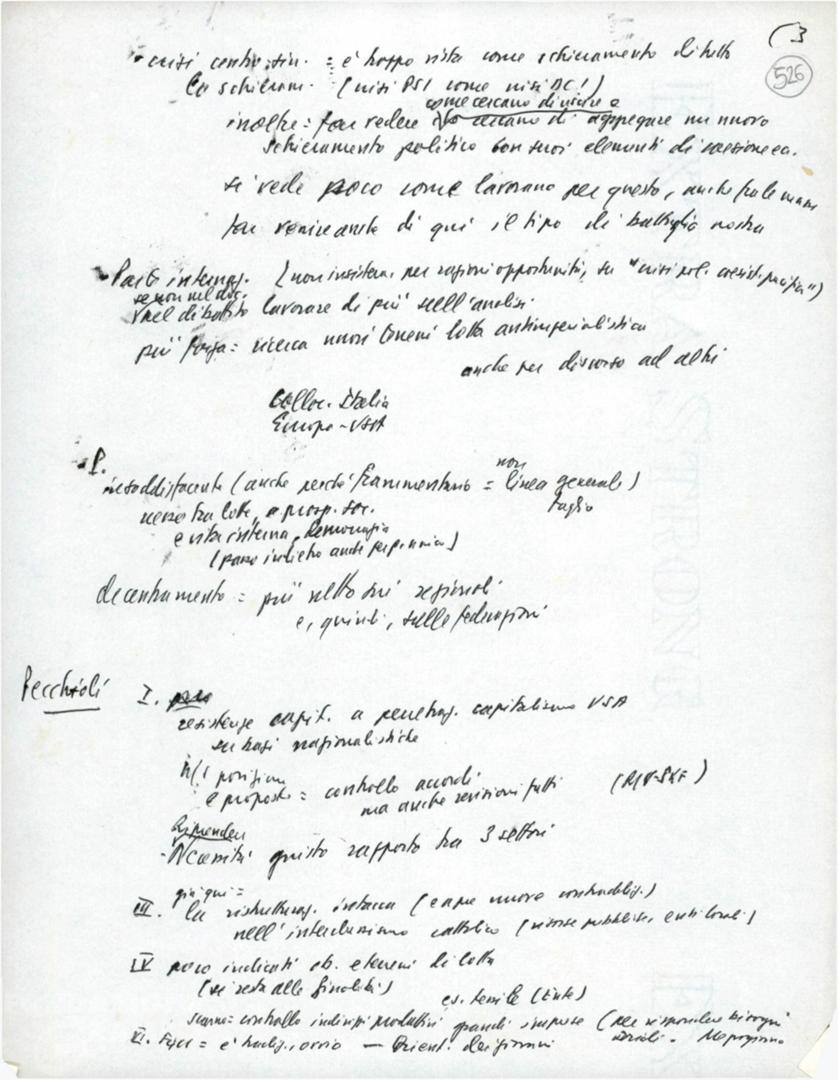 (3
526
• crisi centro-sin. = è troppo vista come schieramento di tutto
lo schieram. (crisi PSI come crisi DC!)
come cercano di unire e
inoltre: far vedere cercano di aggregare un nuovo
schieramento politico con suoi elementi di coesione ecc.
si vede poco come lavorano per questo, anche fra le mani
far venire anche di qui il tipo di battaglia nostra
• Parte internaz. (non insistere, per ragioni opportunità, su "crisi pol. coesist. pacifica")
se non nel doc.
nel dibattito lavorare di più sull'analisi
più forza = ricerca nuovi terreni lotta antimperialistica
anche per discorso ad altri
colloc. Italia
Europa-USA
• P.
insoddisfacente (anche perché frammentario = non linea generale)
taglio
nesso tra lotte, e prosp. soc.
e vita interna, democrazia
(passo indietro anche)
decentramento = più netto sui regionali
e, quindi, sulle federazioni
Pecchioli
I.
resistenze capit. a penetraz. capitalismo USA
su basi nazionalistiche
N/s posizione
e proposte = controllo accordi
ma anche revisioni fatti (RIV-SKF)
Riprendere
- Necessità giusto rapporto tra 3 settori
già qui =
III. la ristrutturaz. intacca (e apre nuove contraddiz.)
nell'interclassismo cattolico (risorse pubbliche, enti locali)
IV poco indicati ob. e terreni di lotta
(si resta alle finalità) es. tessile (Ente)
scarso = controllo indirizzi produttivi grandi imprese (per rispondere bisogni
sociali.
VI. = è, ovvio — Orient. dei giovani